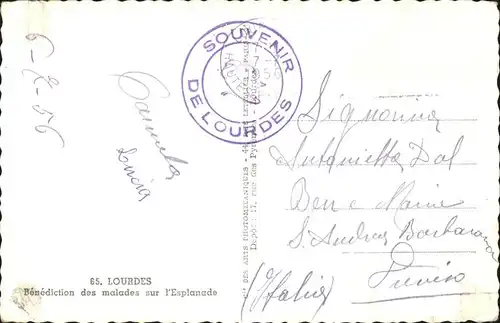 6-7-56
SOUVENIR
DE LOURDES
Carmela
Lucia
65. LOURDES
Bénédiction des malades sur l'Esplanade
DES ARTS PHOTOMÉCANIQUES - 44,
Depôt: 17, rue des
Signorina
Antonietta Dal
Ben e Maria
S. Andrea Barbarana
Treviso
(Italia)